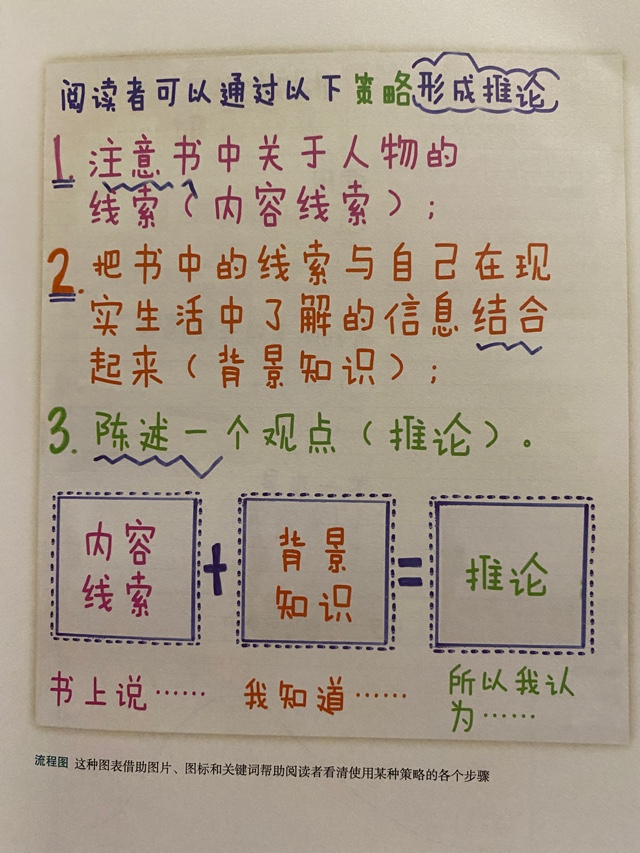 阅读者可以通过以下策略形成推论
1. 注意书中关于人物的
线索（内容线索）；
2. 把书中的线索与自己在现
实生活中了解的信息结合
起来（背景知识）；
3. 陈述一个观点（推论）。
内容
线索
+
背景
知识
=
推论
书上说……
我知道……
所以我认
为……
流程图 这种图表借助图片、图标和关键词帮助阅读者看清使用某种策略的各个步骤